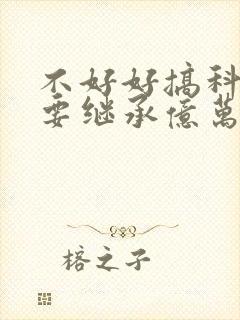 不好好搞科
要继承億萬
榕之子